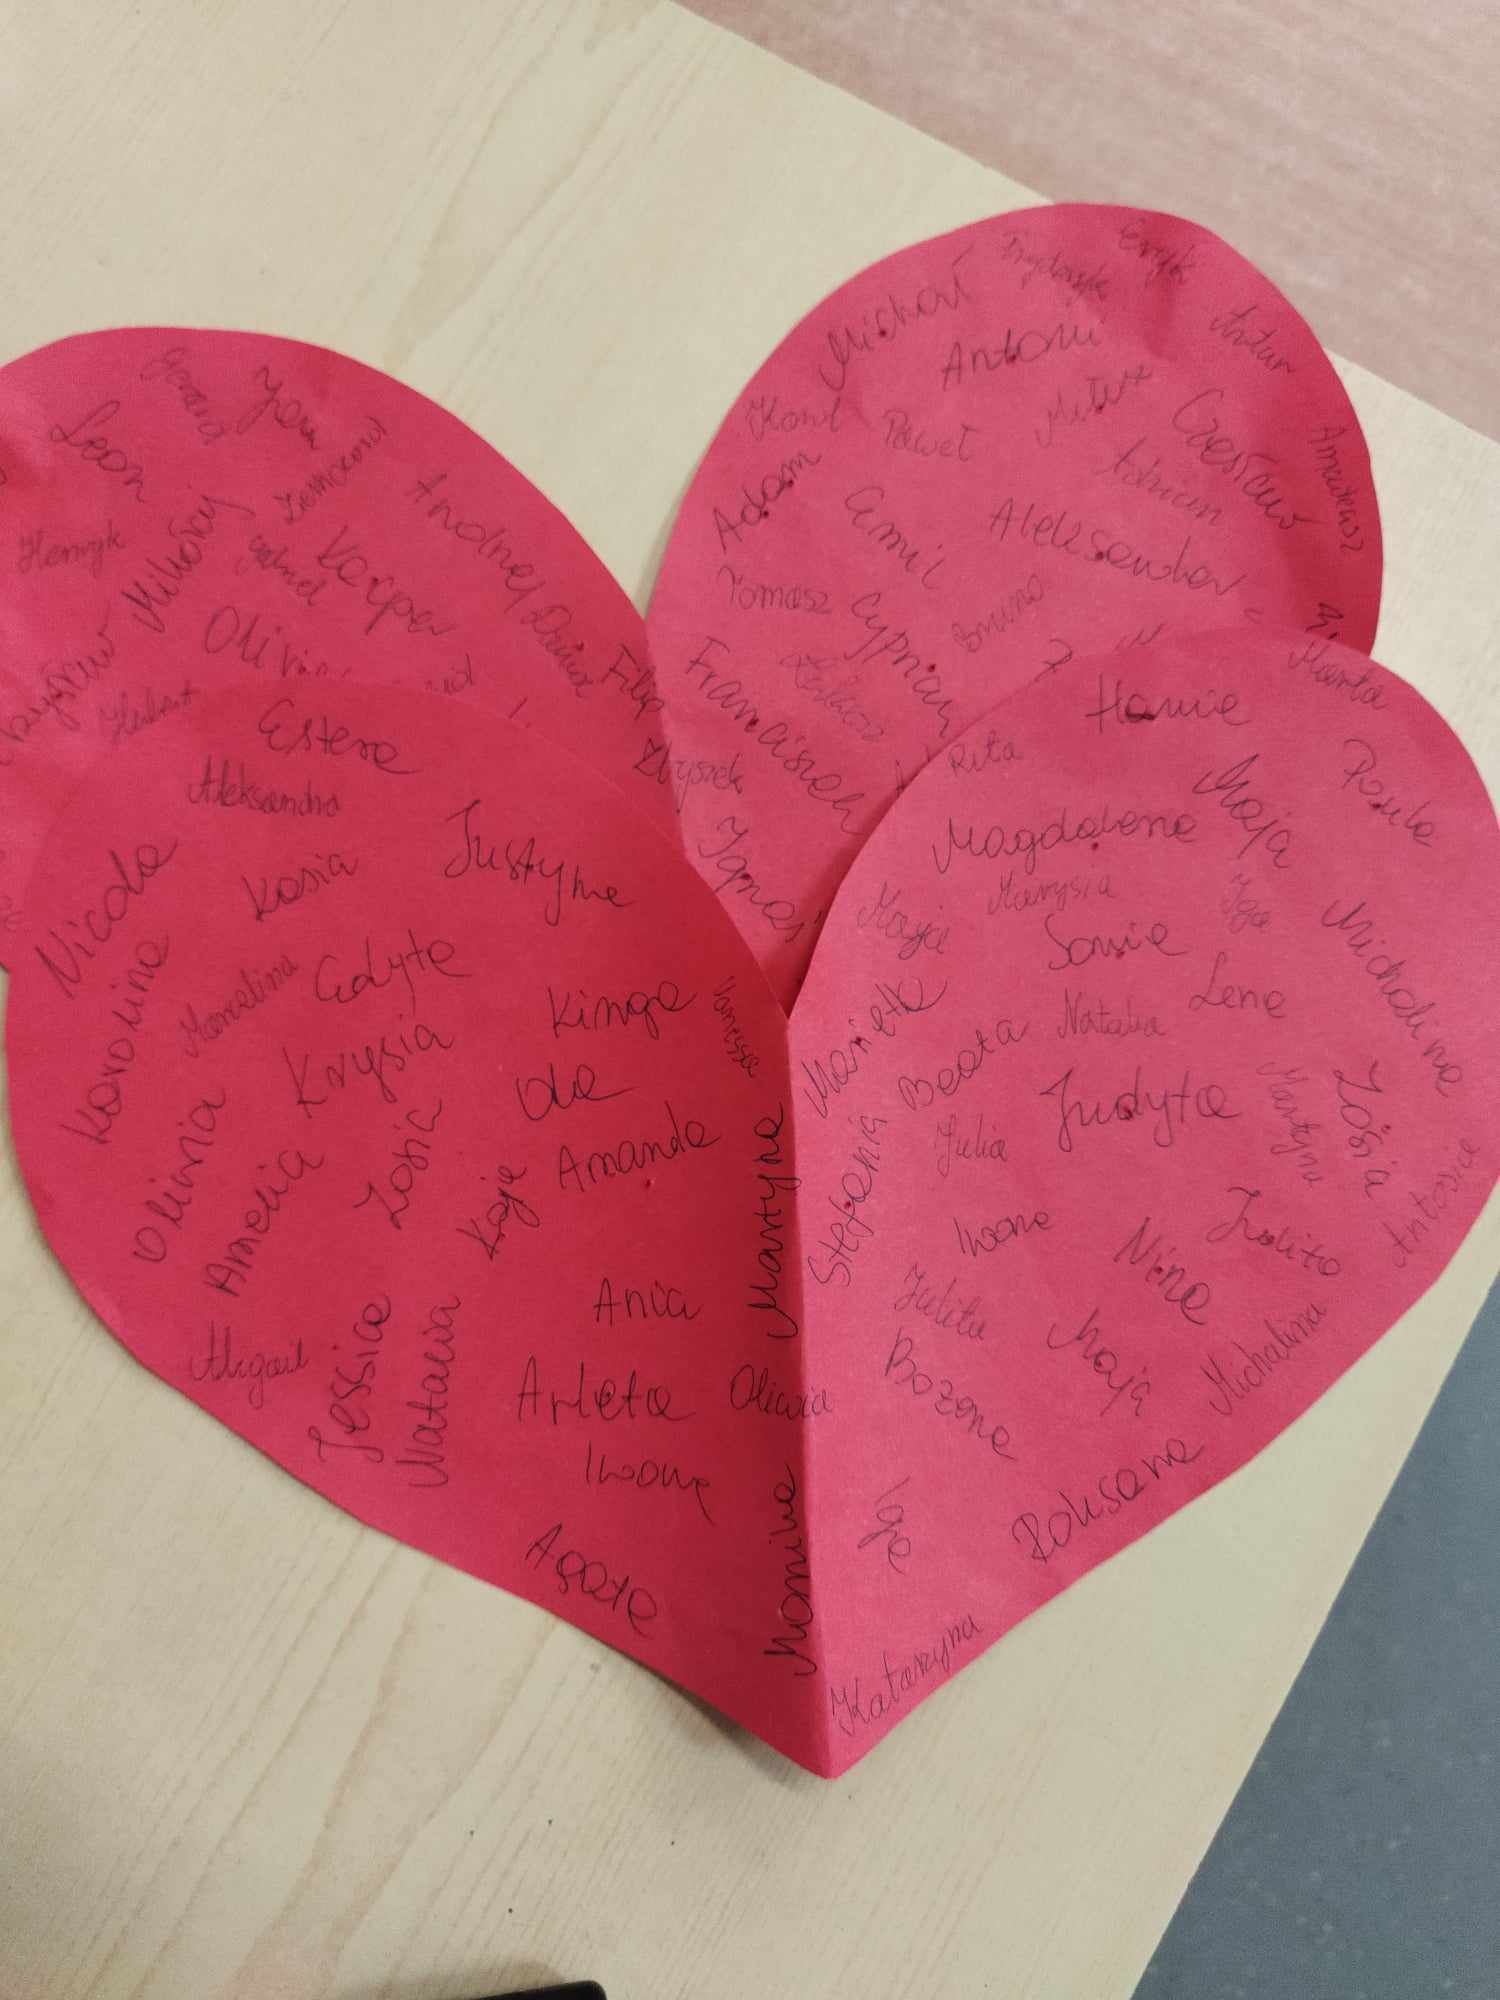 Michał
Eryk
Antoni
Artur
Karol
Paweł
Czesław
Adam
Adrian
Emil
Aleksander
Tomasz
Cyprian
Bruno
Franciszek
Ignaś
Leon
Henryk
Mikołaj
Kacper
Andrzej
Hubert
Filip
Zbyszek
Estera
Aleksandra
Justyna
Nicola
Kasia
Karolina
Marcelina
Edyta
Kinga
Vanessa
Krysia
Ola
Oliwia
Amelia
Zosia
Kaja
Amanda
Martyna
Ania
Abigail
Jessica
Natalia
Arleta
Oliwia
Iwona
Agata
Monika
Hania
Marta
Rita
Maja
Paula
Magdalena
Marysia
Iga
Maja
Sonia
Michalina
Lena
Marietta
Beata
Natalia
Judyta
Martyna
Zosia
Julia
Stefania
Antosia
Iwona
Nina
Jolita
Julita
Bożena
Maja
Michalina
Iga
Roksana
Katarzyna